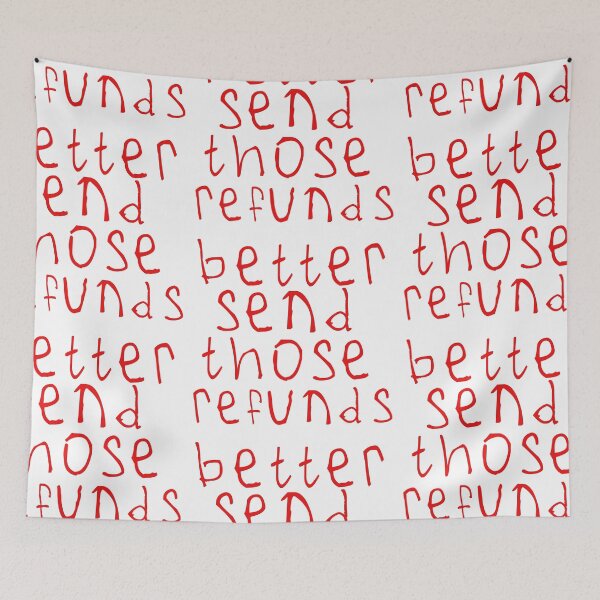 funds
etter
end
hose
funds
etter
end
hose
funds
better
send
those
refunds
better
send
those
refunds
better
send
refund
bette
send
those
refund
bette
send
those
refund